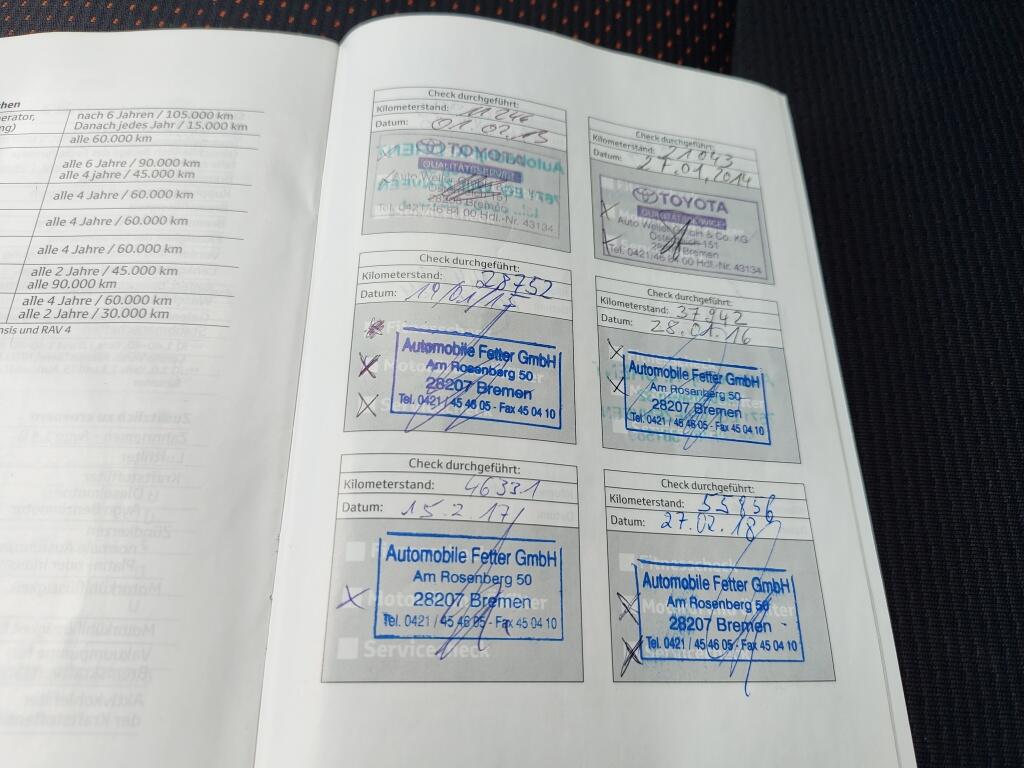 chen
nach 6 Jahren / 105.000 km
Danach jedes Jahr / 15.000 km
alle 60.000 km
alle 6 Jahre / 90.000 km
alle 4 jahre / 45.000 km
alle 4 Jahre / 60.000 km
alle 4 Jahre / 60.000 km
alle 4 Jahre / 60.000 km
alle 2 Jahre / 45.000 km
alle 90.000 km
alle 4 Jahre / 60.000 km
alle 2 Jahre / 30.000 km
nsis und RAV 4
Check durchgeführt:
Kilometerstand: 11246
Datum: 01.02.13
TOYOTA
28 Bremen
Tel. 0421/46 84 00 Hdl.-Nr. 43134
Check durchgeführt:
Kilometerstand: 21043
Datum: 27.01.2014
TOYOTA
Auto Weller GmbH & Co. KG
151
Bremen
Tel. 0421/46 84 00 Hdl.-Nr. 43134
Check durchgeführt:
Kilometerstand: 28752
Datum: 19/01/15
Automobile Fetter GmbH
Am Rosenberg 50
28207 Bremen
Tel. 0421 / 45 46 05 - Fax 45 04 10
Check durchgeführt:
Kilometerstand: 37942
Datum: 28.01.16
Automobile Fetter GmbH
Am Rosenberg 50
28207 Bremen
Tel. 0421 / 45 46 05 - Fax 45 04 10
Check durchgeführt:
Kilometerstand: 46331
Datum: 15.2.17
Automobile Fetter GmbH
Am Rosenberg 50
28207 Bremen
Tel. 0421 / 45 46 05 - Fax 45 04 10
Check durchgeführt:
Kilometerstand: 55856
Datum: 27.02.18
Automobile Fetter GmbH
Am Rosenberg 50
28207 Bremen
Tel. 0421 / 45 46 05 - Fax 45 04 10